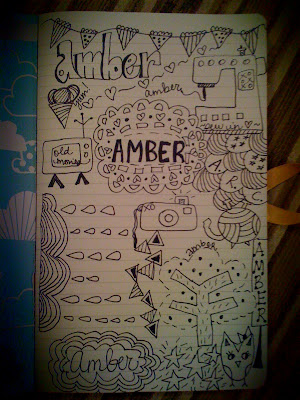 amber
amber
yum!
sew in!
old
movies
AMBER
amber
AMBER
Amber